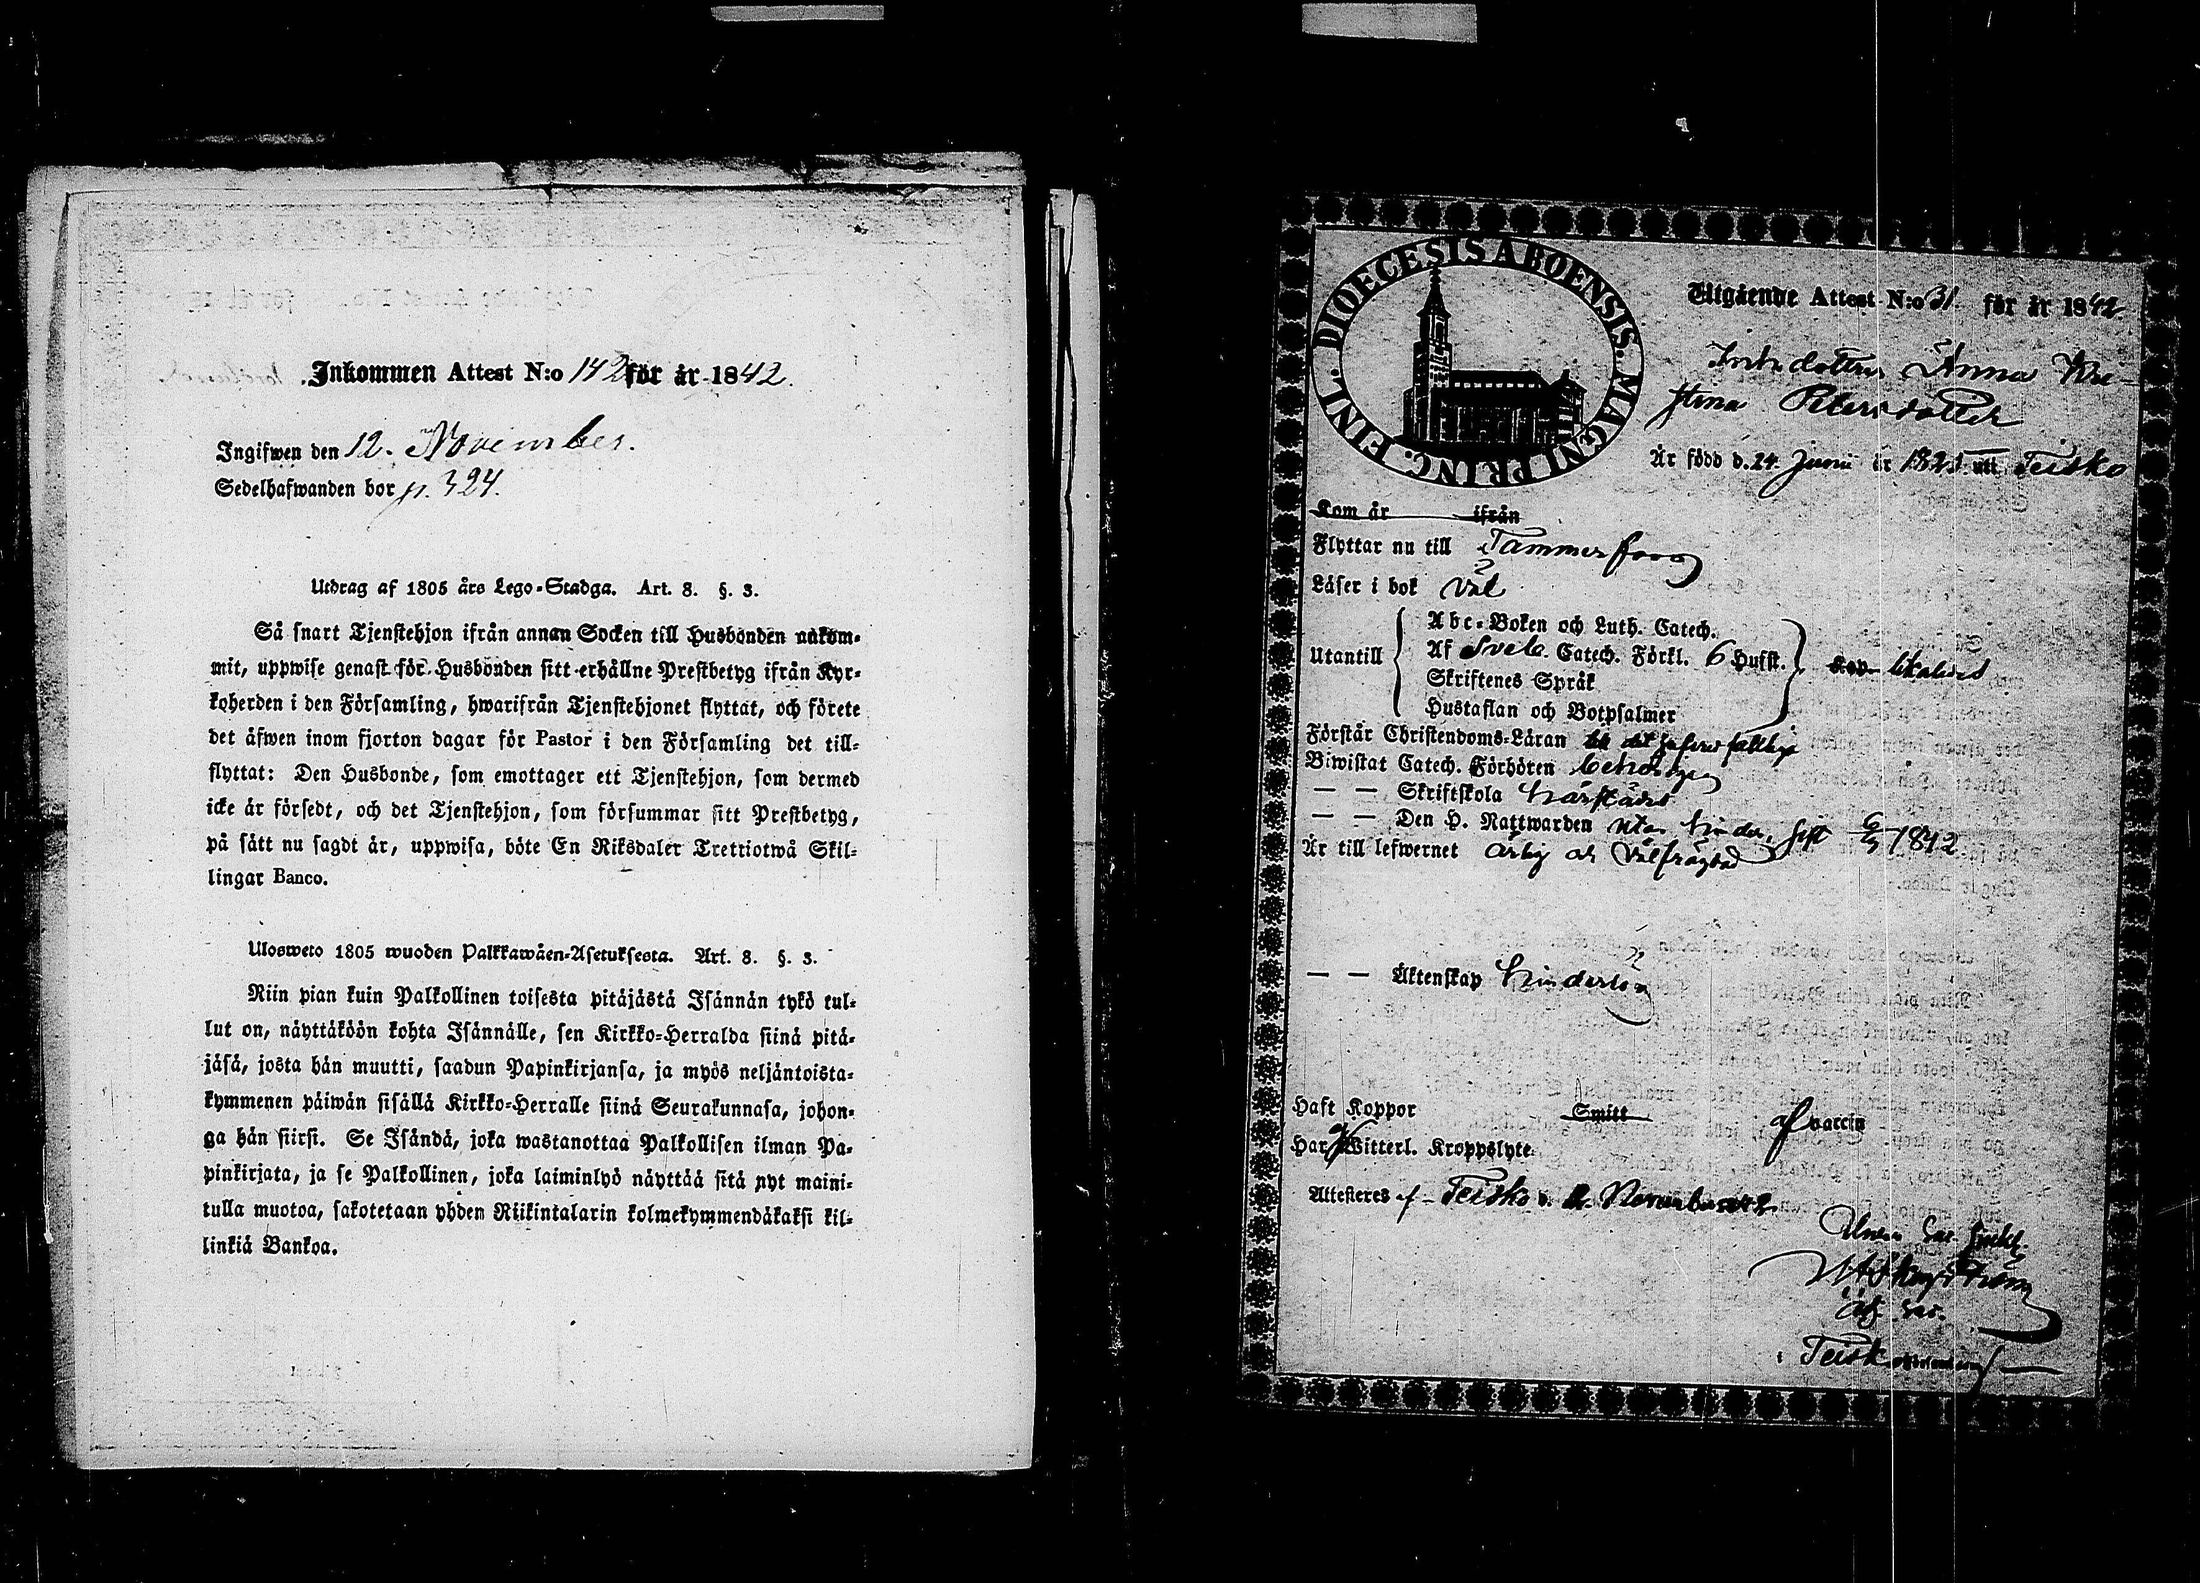 Inkommen Attest N:o 142 för år 1842.
Ingifwen den 12. November.
Sedelhafwanden bor p. 324.
Utdrag af 1805 års Lego-Stadga. Art. 8. §. 3.
Så snart Tjenstehjon ifrån annan Socken till Husbonden nåkom-
mit, uppwise genast för Husbonden sitt erhållne Prestbetyg ifrån Kyr-
koherden i den Församling, hwarifrån Tjenstehjonet flyttat, och förete
det äfwen inom fjorton dagar för Pastor i den Församling det till-
flyttat: Den Husbonde, som emottager ett Tjenstehjon, som dermed
icke är försedt, och det Tjenstehjon, som försummar sitt Prestbetyg,
på sätt nu sagdt är, uppwisa, böte En Riksdaler Trettiotwå Skil-
lingar Banco.
Ulosweto 1805 wuoden Palkkawäen-Asetuksesta. Art. 8. §. 3.
Niin pian kuin Palkollinen toisesta pitäjästä Isännän tykö tul-
lut on, näyttäköön kohta Isännälle, sen Kirkko-Herralda siinä pitä-
jäsä, josta hän muutti, saadun Papinkirjansa, ja myös neljäntoista-
kymmenen päiwän sisällä Kirkko-Herralle siinä Seurakunnasa, johon-
ga hän siirsi. Se Isändä, joka wastanottaa Palkollisen ilman Pa-
pinkirjata, ja se Palkollinen, joka laiminlyö näyttää sitä nyt maini-
tulla muotoa, sakotetaan yhden Riikintalarin kolmekymmendäkaksi kil-
linkiä Bankoa.
DIOECESIS ABOENSIS. MAGNI PRINC. FINL.
Utgående Attest N:o 31 för år 1842
Anna Kri-
stina Petersdotter
Är född d. 24 Junii år 182 uti Teisko
Kom år ifrån
Flyttar nu till Tammerfors
Läser i bok väl
Utantill
Abc-Boken och Luth. Catech.
Af Sveb. Catech. Förkl. 6 Hufst.
Skriftenes Språk
Hustaflan och Botpsalmer
Förstår Christendoms-Läran
Biwistat Catech. Förhören
— — Skriftskola härstädes
— — Den H. Nattwarden utan hinder, sist 1842
Är till lefwernet ärlig och välfrägdad
— — Äktenskap hinderlös
Haft Koppor Smitt af vaccin
Har ej Witterl. Kroppslyte
Attesteras af Teisko d. November 1842
Teisko